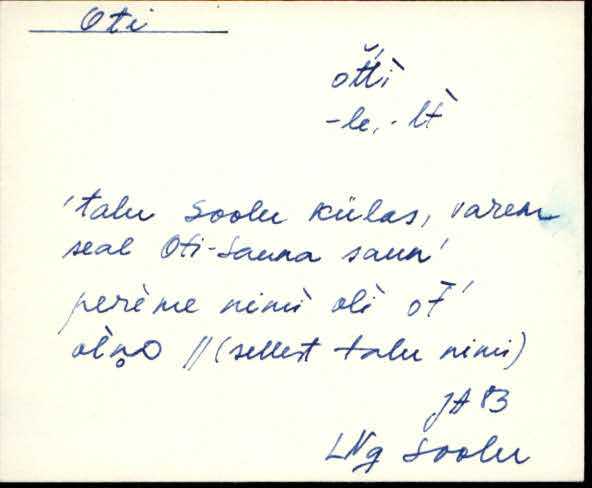 Oti
ot̆t́ì
-le, -lt̀
'talu Soolu külas, varem
seal Oti-Sauna saun'
perè̀me nimì olì
//(sellest talu nimi)
JA 83
LNg Soolu